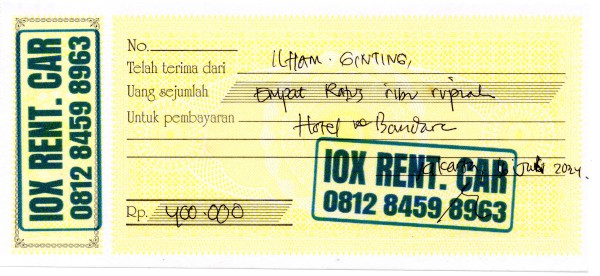 IOX RENT. CAR
0812 8459 8963
No.
Telah terima dari ILHAM. GINTING,
Uang sejumlah Empat Ratus ribu rupiah
Untuk pembayaran Hotel ke Bandara
Juli 2024.
IOX RENT. CAR
0812 8459 8963
Rp. 400.000